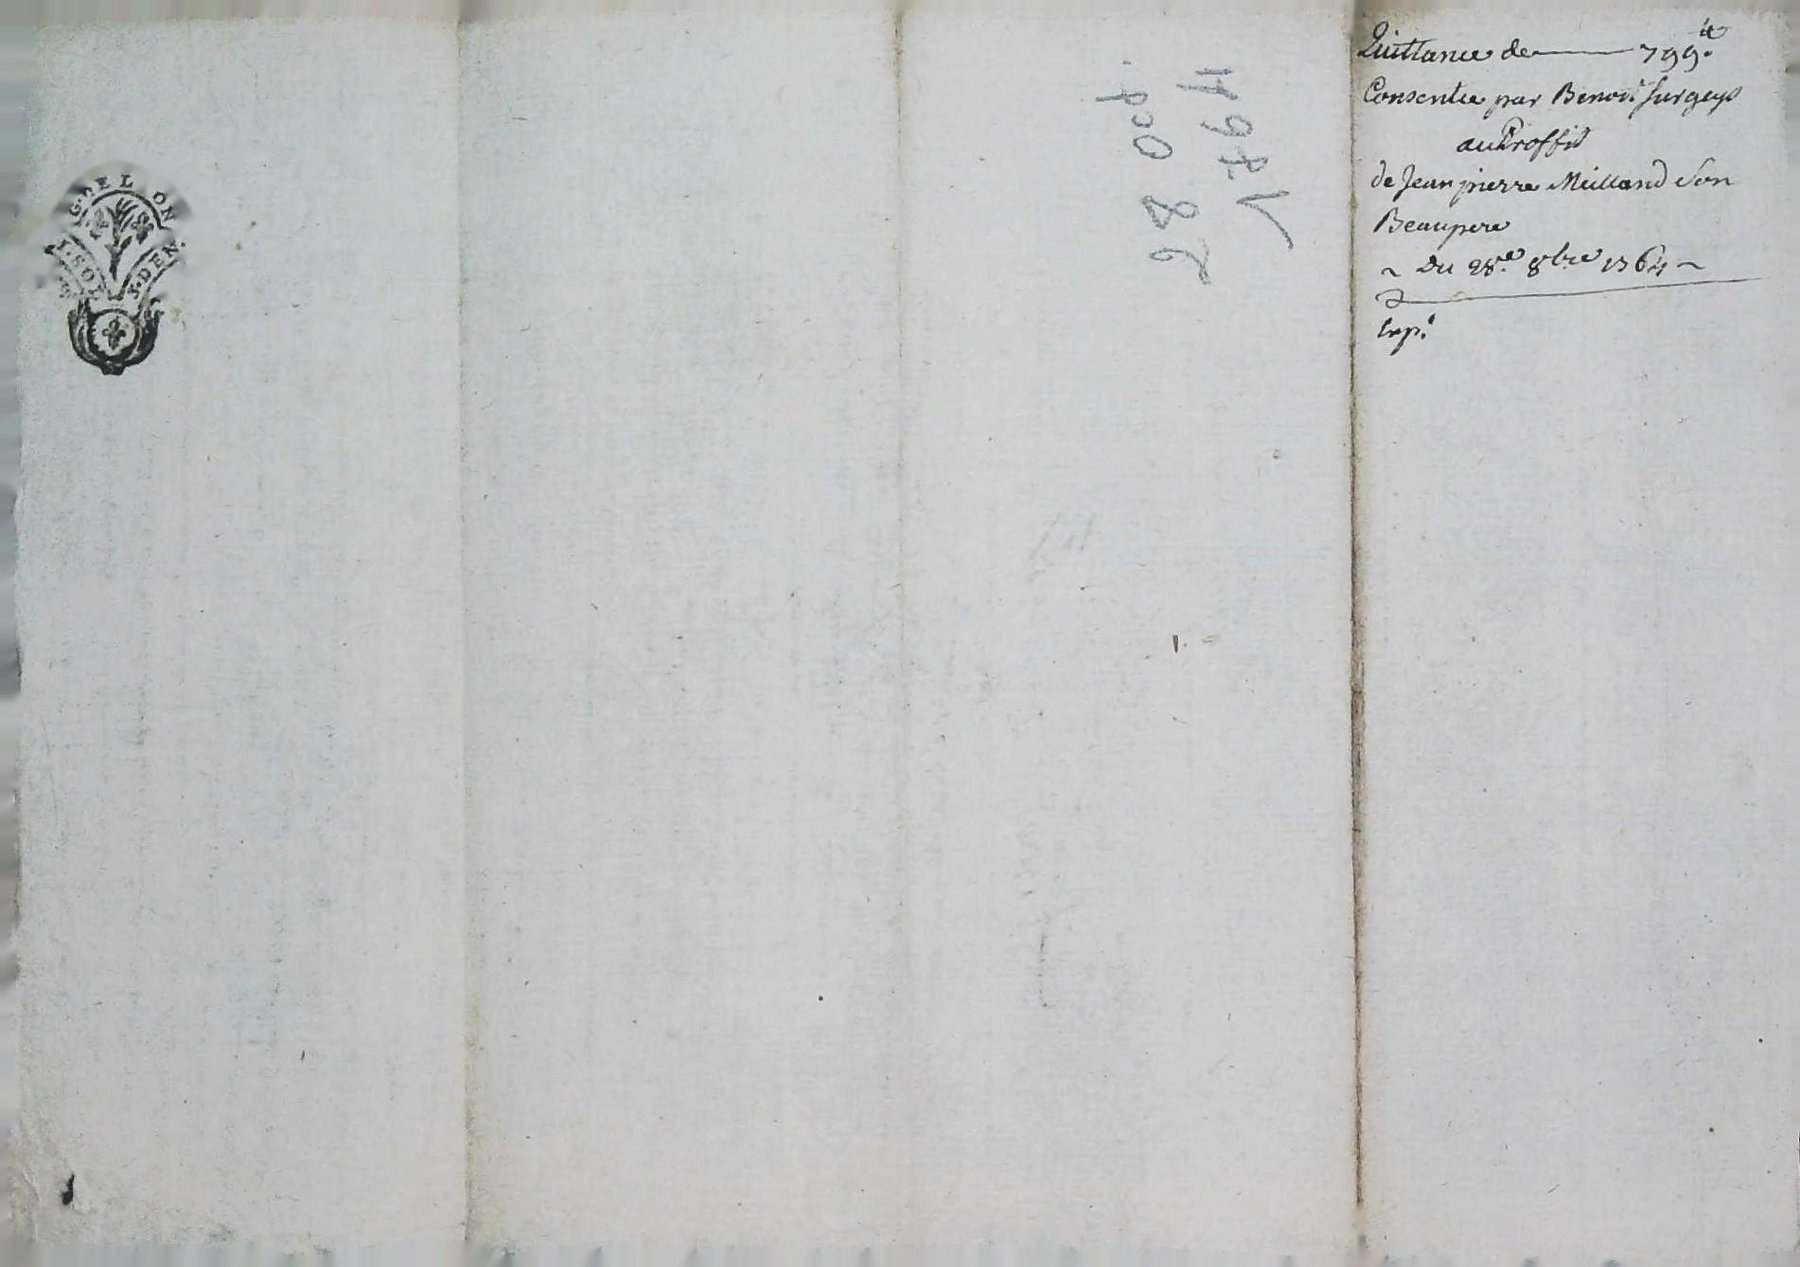 G. DE LION
1. SOL
8. DEN.
28 Oct.
1764
Quittance de —— 799.tt
Consentie par Benoit Surgeys
au Proffit
de Jean pierre Meilland Son
Beaupere
~ Du 28.e 8bre 1764 ~
Exp.é